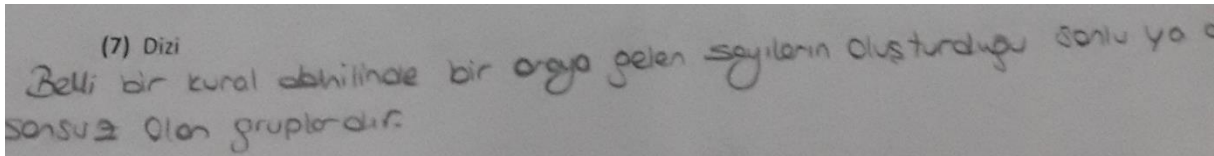 (7) Dizi
Belli bir kural dahilinde bir araya gelen sayıların oluşturduğu sonlu ya
sonsuz olan gruplardır.